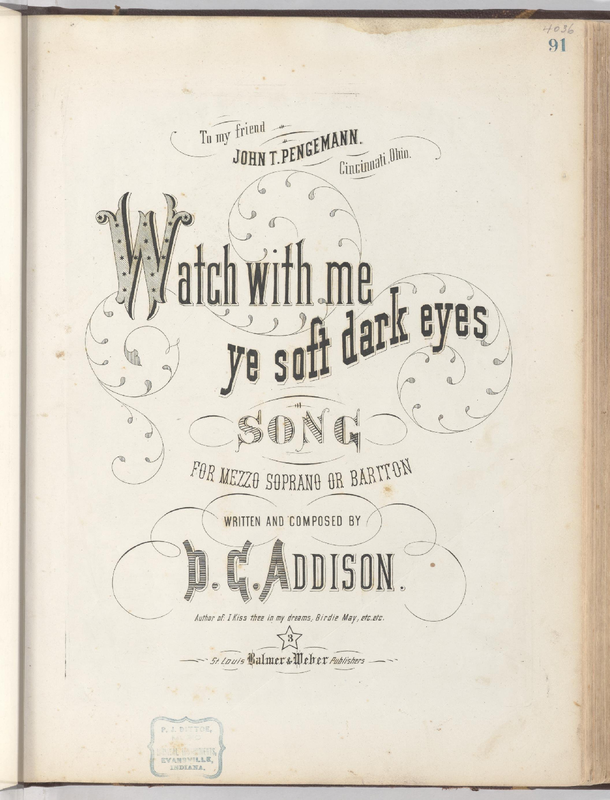 4036
91
To my friend
JOHN T. PENGEMANN.
Cincinnati, Ohio.
Watch with me
ye soft dark eyes
SONG
FOR MEZZO SOPRANO OR BARITON
WRITTEN AND COMPOSED BY
D. C. ADDISON.
Author of: I Kiss thee in my dreams, Birdie May, etc. etc.
3
St. Louis Balmer & Weber Publishers
EVANSVILLE,
INDIANA.